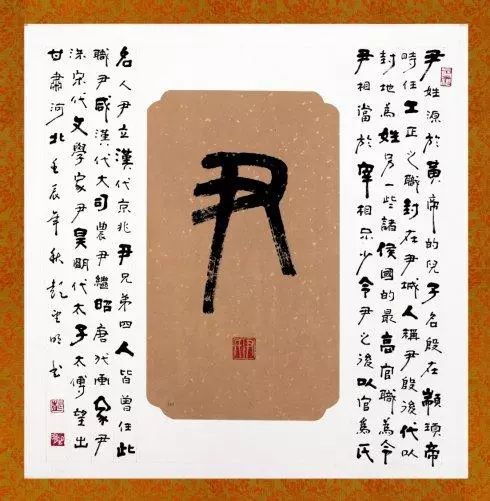 尹姓源於黃帝的兒子名殷在顓頊帝
時任工正之職封在尹城人稱尹殷後代以
封地為姓另一些諸侯國的最高官職為令
尹相當於宰相不少令尹之後以官為氏
尹
名人尹立漢代京兆尹兄弟四人皆曾任此
職尹咸漢代大司農尹繼昭唐代畫家尹
洙宋代文學家尹昊明代太子太傅望出
甘肅河北壬辰年秋彭